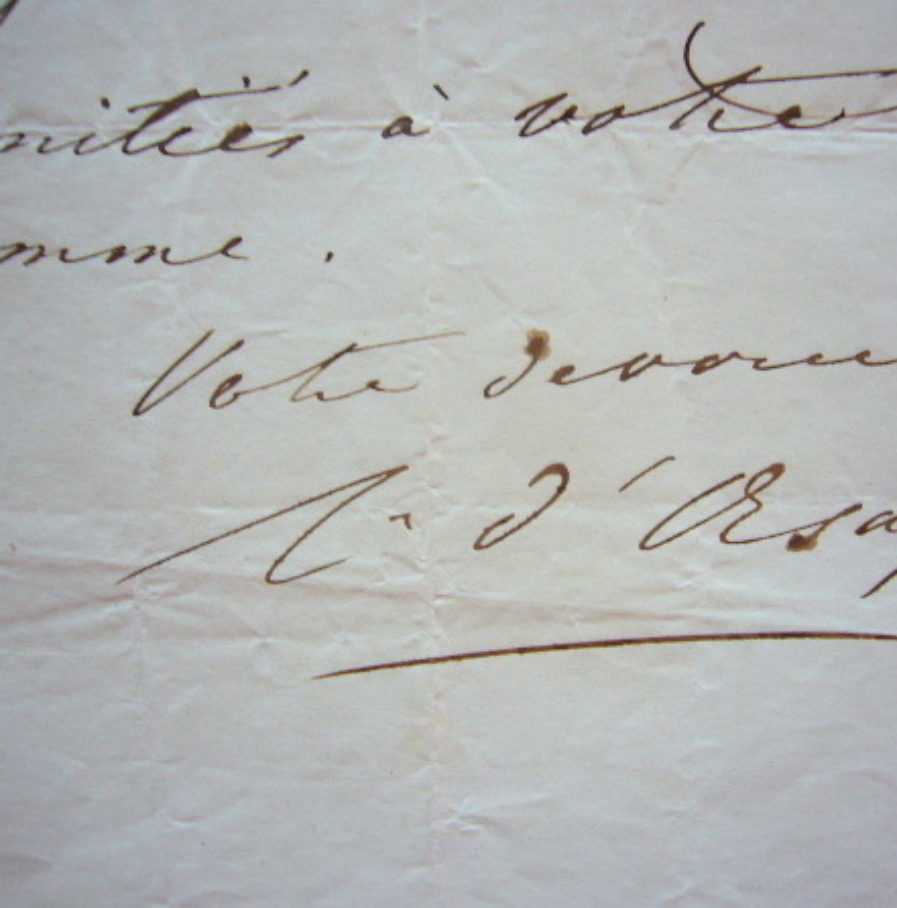 mitiés à votre
omme.
Votre devoué
d'Esa